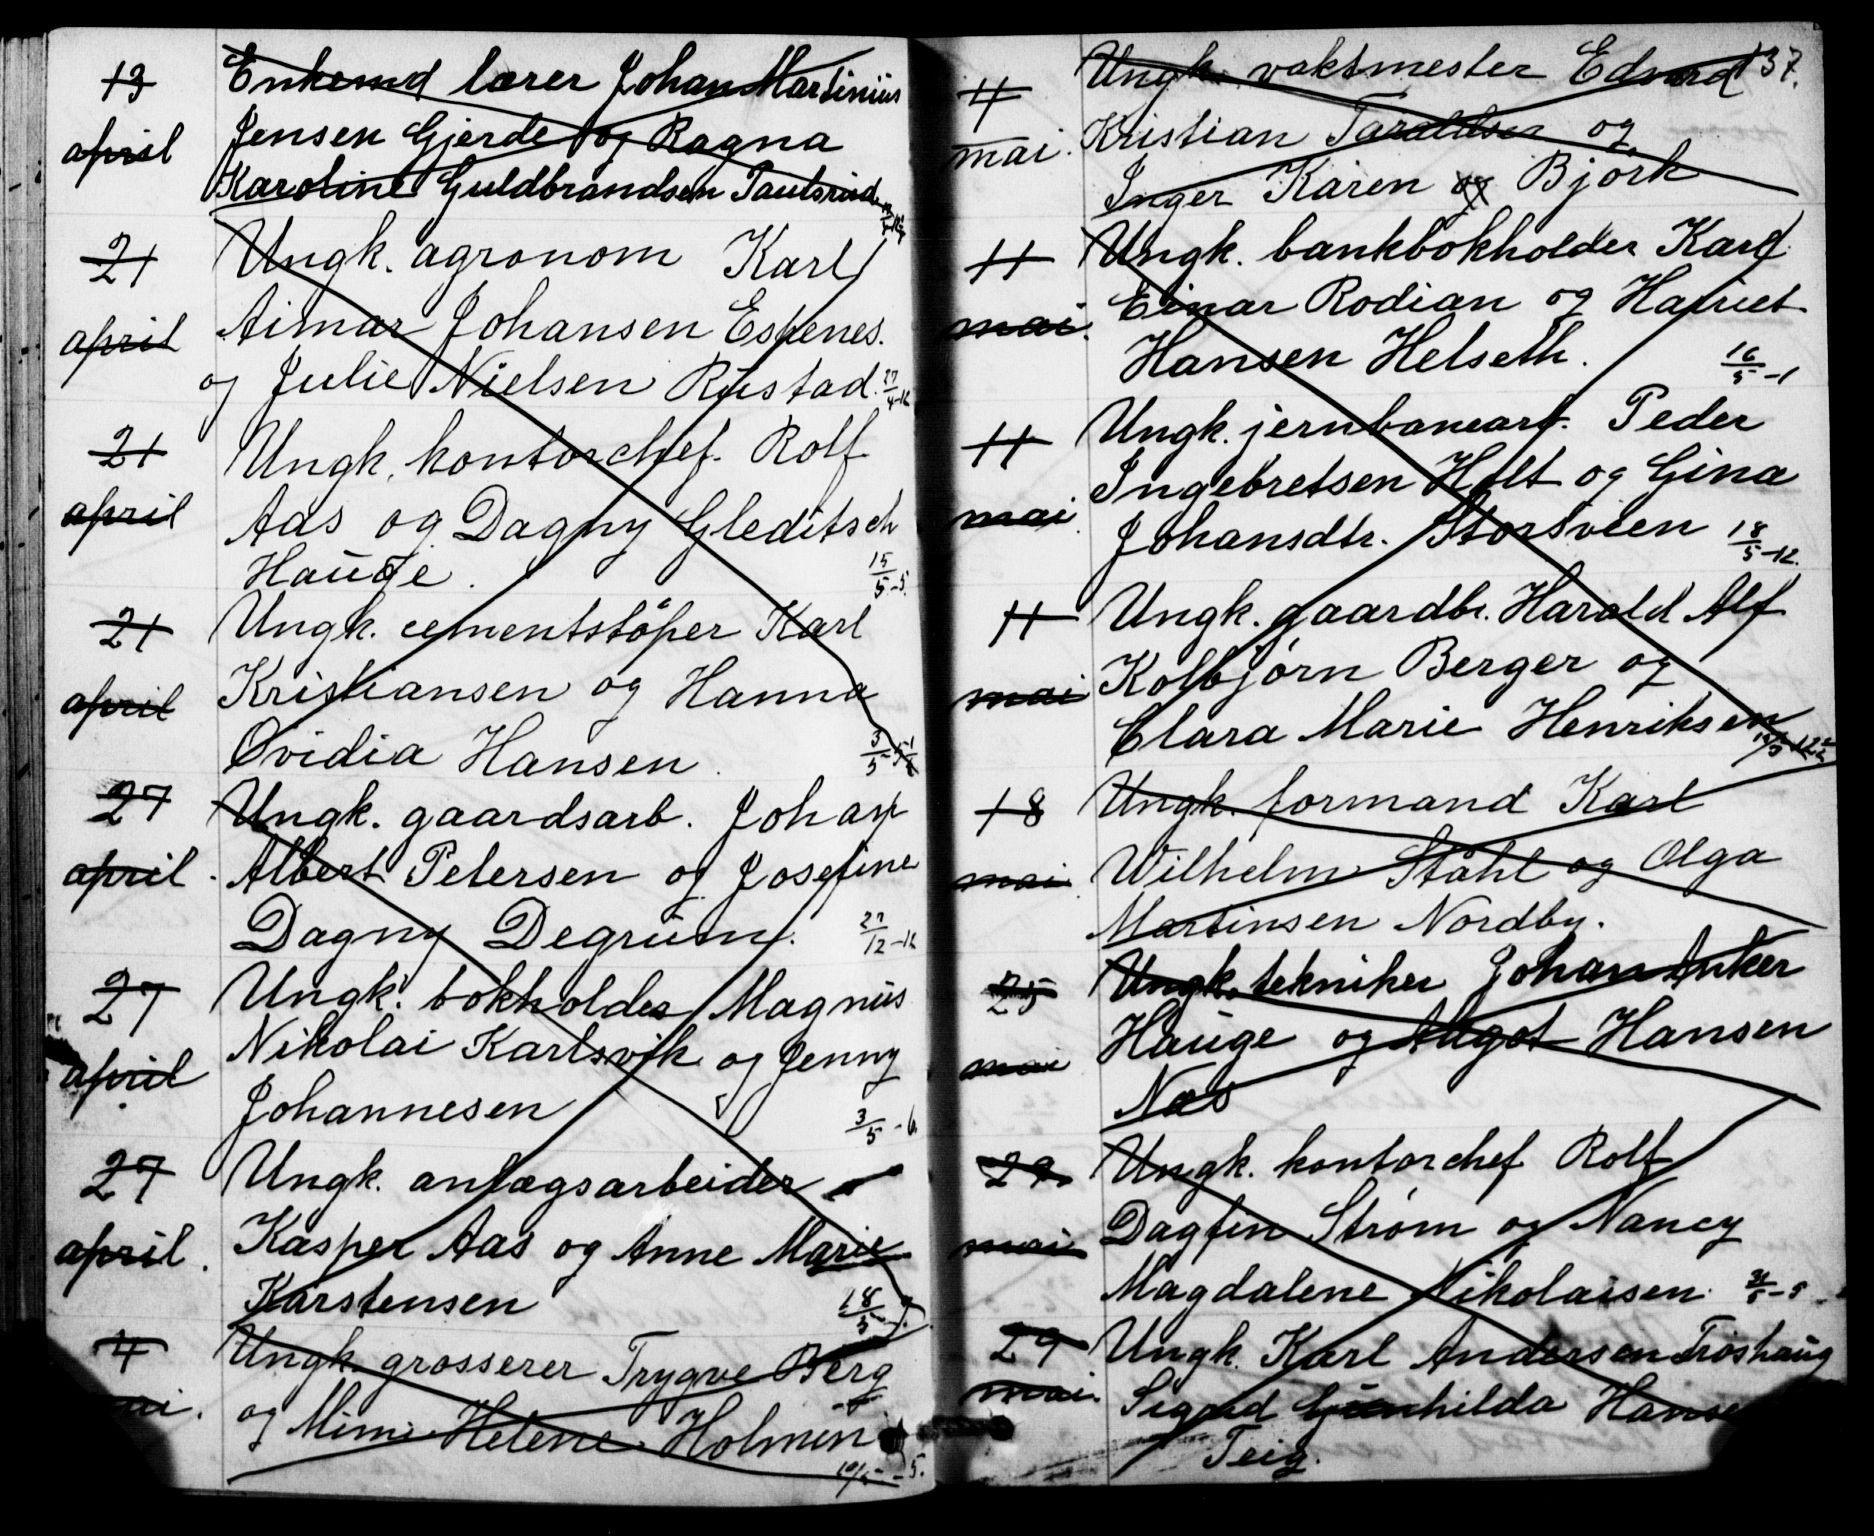 13 Enkemd lærer Johan Martinius
april Jensen Gjerde og Ragna
Karoline Guldbrandsen Paulsrud
21 Ungk. agronom Karl
april Aimar Johansen Espenes.
og Julie Nielsen Rustad. 27/4-12
21 Ungk. kontorchef. Rolf
april Aas og Dagny Gleditsch
Hauge. 15/5-5.
21 Ungk. cementstöper Karl
april Kristiansen og Hanna
Ovidia Hansen. 3/5
27 Ungk. gaardsarb. Johan
april. Albert Petersen og Josefine
Dagny Degrum. 27/12-12
27 Ungk. bokholder Magnus
april Nikolai Karlsvik og Jenny
Johannesen 3/5-6
27 Ungk. anlægsarbeider
april. Kasper Aas og Anne Marie
Karstensen 18/5
4 Ungk. grosserer Trygve Berg
mai. og Mimi Helene Holmen
10/5-5.
137.
4 Ungk. vaktmester Edvard
mai. Kristian Taraldsen og
Inger Karen og Bjørk
11 Ungk. bankbokholder Karl
mai. Einar Rodian og Harriet
Hansen Helseth. 16/5-1
11 Ungk. jernbanearb. Peder
mai Ingebretsen Holt og Gina
Johansdtr. Storsveen 18/5-12.
11 Ungk. gaardbr. Harald Alf
mai Kolbjørn Berger og
Clara Marie Henriksen
18 Ungk. formand Karl
mai Wilhelm Ståhl og Olga
Martinsen Nordby.
25 Ungk. tekniker Johan Anker
mai Hauge og Aagot Hansen
Næs
29 Ungk. kontorchef Rolf
mai Dagfin Strøm og Nancy
Magdalene Nikolaisen. 31/5-5
29 Ungk. Karl Andersen Troshaug
mai. Sigrid Gunhilda Hansen
Teig.